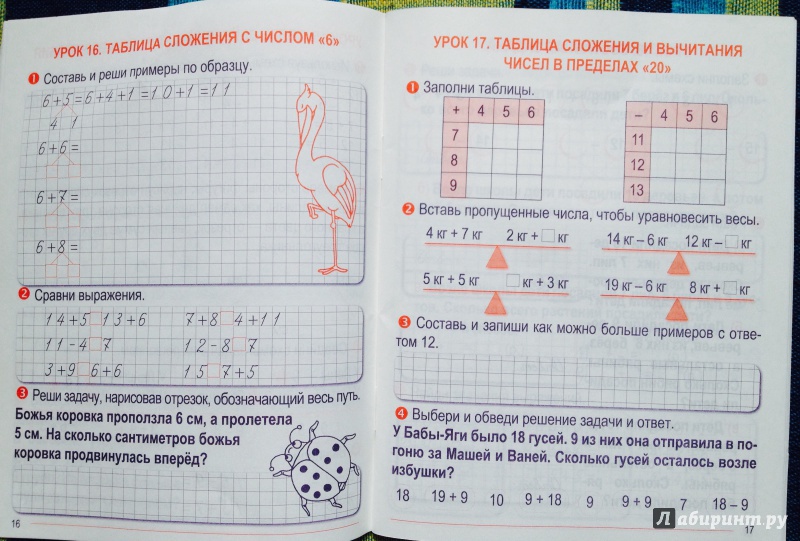 УРОК 16. ТАБЛИЦА СЛОЖЕНИЯ С ЧИСЛОМ «6»
1 Составь и реши примеры по образцу.
6+5=6+4+1=10+1=11
4 1
6+6=
6+7=
6+8=
2 Сравни выражения.
14+5□13+6 7+8□4+11
11-4□7 12-8□7
3+9□6+6 15□7+5
3 Реши задачу, нарисовав отрезок, обозначающий весь путь.
Божья коровка проползла 6 см, а пролетела
5 см. На сколько сантиметров божья
коровка продвинулась вперёд?
16
УРОК 17. ТАБЛИЦА СЛОЖЕНИЯ И ВЫЧИТАНИЯ
ЧИСЕЛ В ПРЕДЕЛАХ «20»
1 Заполни таблицы.
+ 4 5 6
7
8
9
– 4 5 6
11
12
13
2 Вставь пропущенные числа, чтобы уравновесить весы.
4 кг + 7 кг 2 кг + □ кг 14 кг – 6 кг 12 кг – □ кг
5 кг + 5 кг □ кг + 3 кг 19 кг – 6 кг 8 кг + □ кг
3 Составь и запиши как можно больше примеров с отве-
том 12.
4 Выбери и обведи решение задачи и ответ.
У Бабы-Яги было 18 гусей. 9 из них она отправила в по-
гоню за Машей и Ваней. Сколько гусей осталось возле
избушки?
18 19 + 9 10 9 + 18 9 9 + 9 7 18 – 9
17
Лабиринт.ру